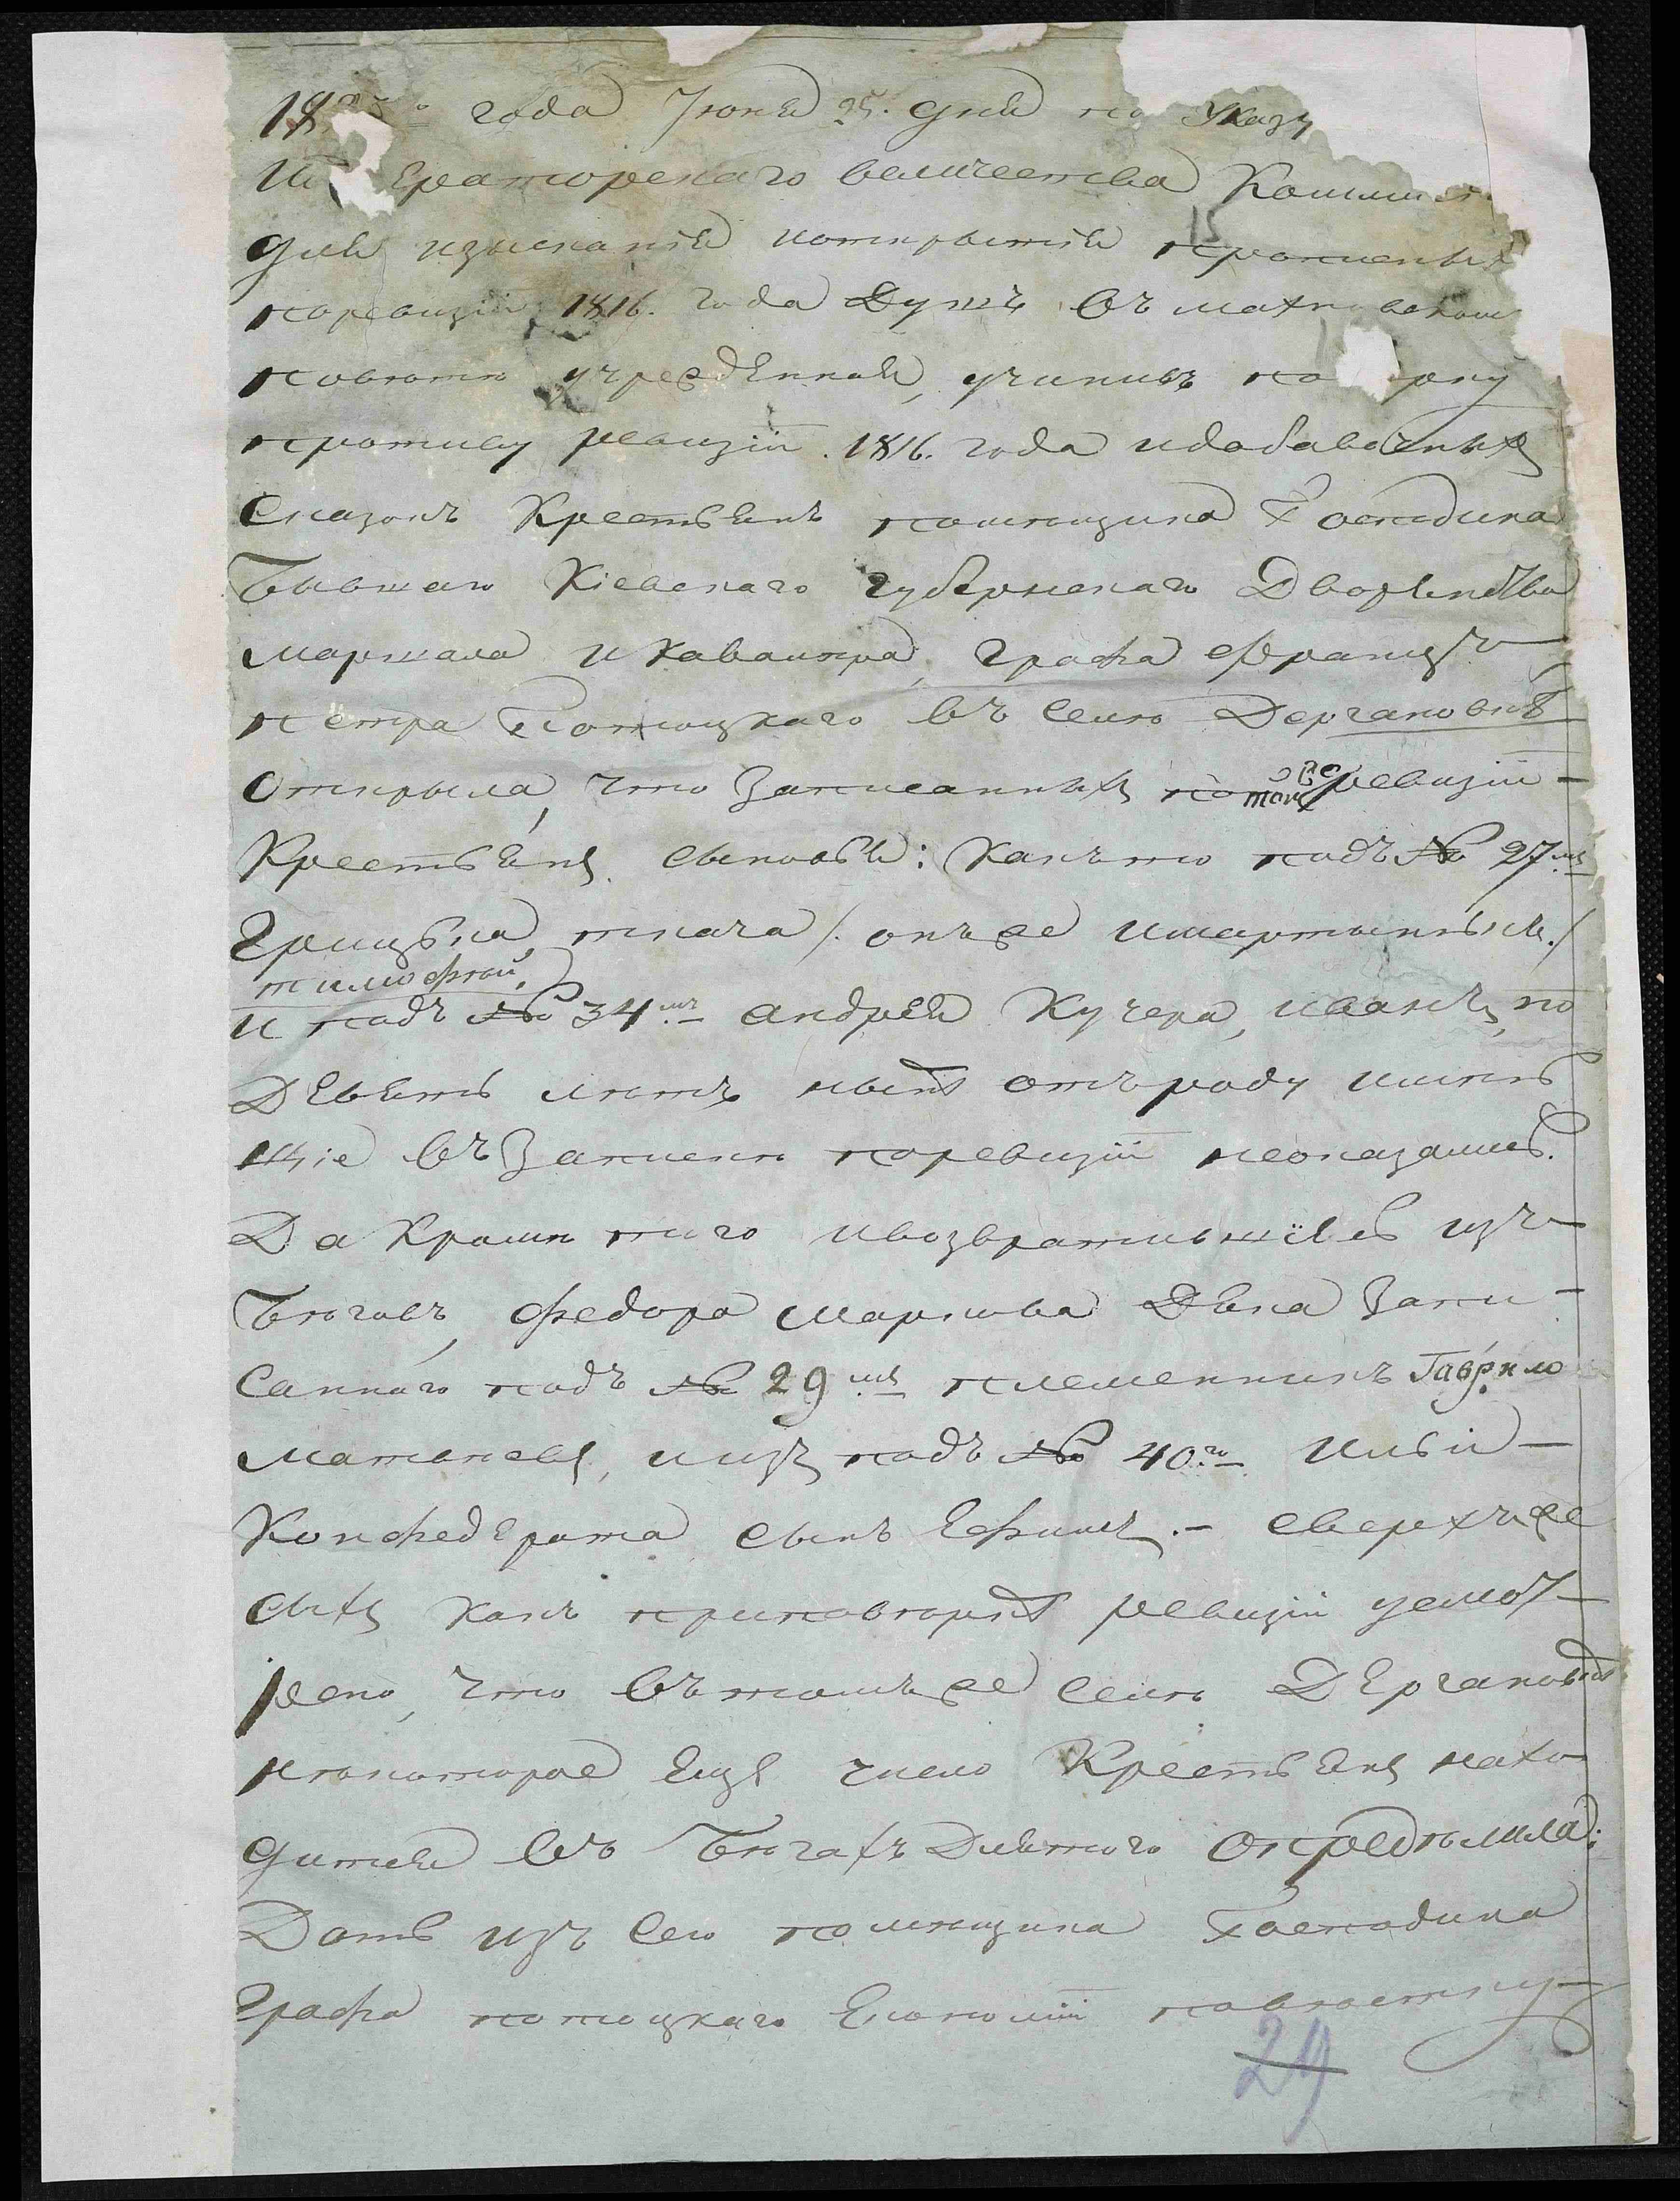 18 го года Іюня 25. дня по указу
Им ераторскаго величества Коммис
для изысканія и открытія прописных
15
по ревизіи 1816. года Душъ въ махновском
повѣтѣ учрежденная, учинивъ по рку
противу ревизіи. 1816. года и добавочныхъ
Сказокъ Крестьянъ помѣщика Господина
бывшаго Кіевскаго губернскаго Дворянства
маршала и кавалера, графа Францъ
петра Потоцкаго въ селѣ Дергановкѣ
открыла, что записанныхъ по той же ревизіи
Крестьянъ сыновья: какъ то подъ № 27мъ
Грицька ткача /: онъ же и мартынькъ :/
тимофей,
и подъ № 34мъ андрея Кучера, иванъ, по
Девять лѣтъ нынѣ отъ роду имѣю
щіе въ запискѣ по ревизіи неоказались.
Да кромѣ того и возвратившіеся изъ
бѣговъ, федора маркова Дяка запи-
саннаго подъ № 29мъ племенникъ Гаврило
матвѣевъ, и изъ подъ № 40го Ильи
Конфедерата сынъ Ефимъ. - сверхъ же
сихъ какъ при повѣркѣ ревизіи усмот
рено, что въ томъ же селѣ Дергановкѣ
нѣкоторое еще число Крестьянъ нахо
дится въ бѣгахъ Для того опредѣлила:
Дать изъ сего помѣщика Господина
Графа потоцкаго Економіи повѣстку
29